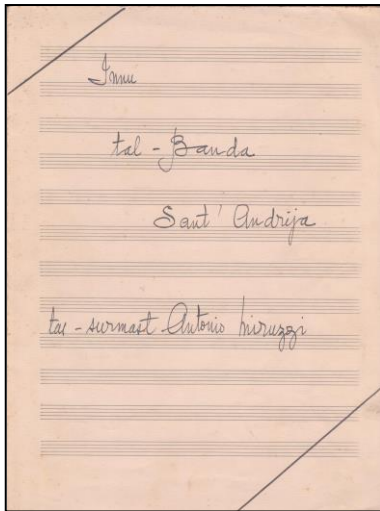 Innu
tal - Banda
Sant' Andrija
tas - surmast Antonio Miruzzi